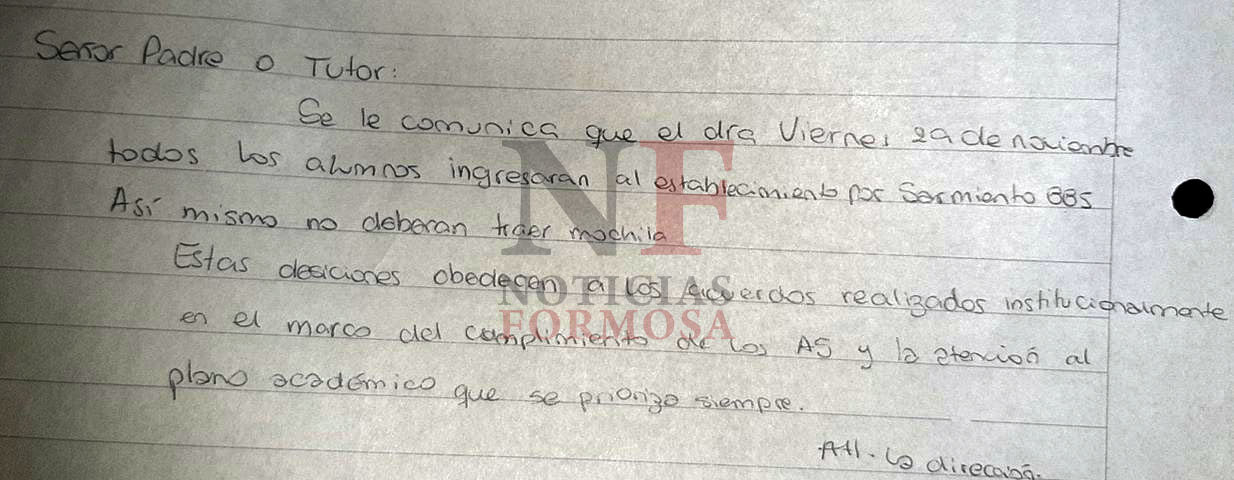 Señor Padre o Tutor:
Se le comunica que el día Viernes 29 de noviembre
todos los alumnos ingresaran al establecimiento por Sarmiento 885
Así mismo no deberan traer mochila
Estas desiciones obedecen a los acuerdos realizados institucionalmente
en el marco del cumplimiento de los AS y la atención al
plano académico que se prioriza siempre.
Att. La dirección.
NF
NOTICIAS
FORMOSA